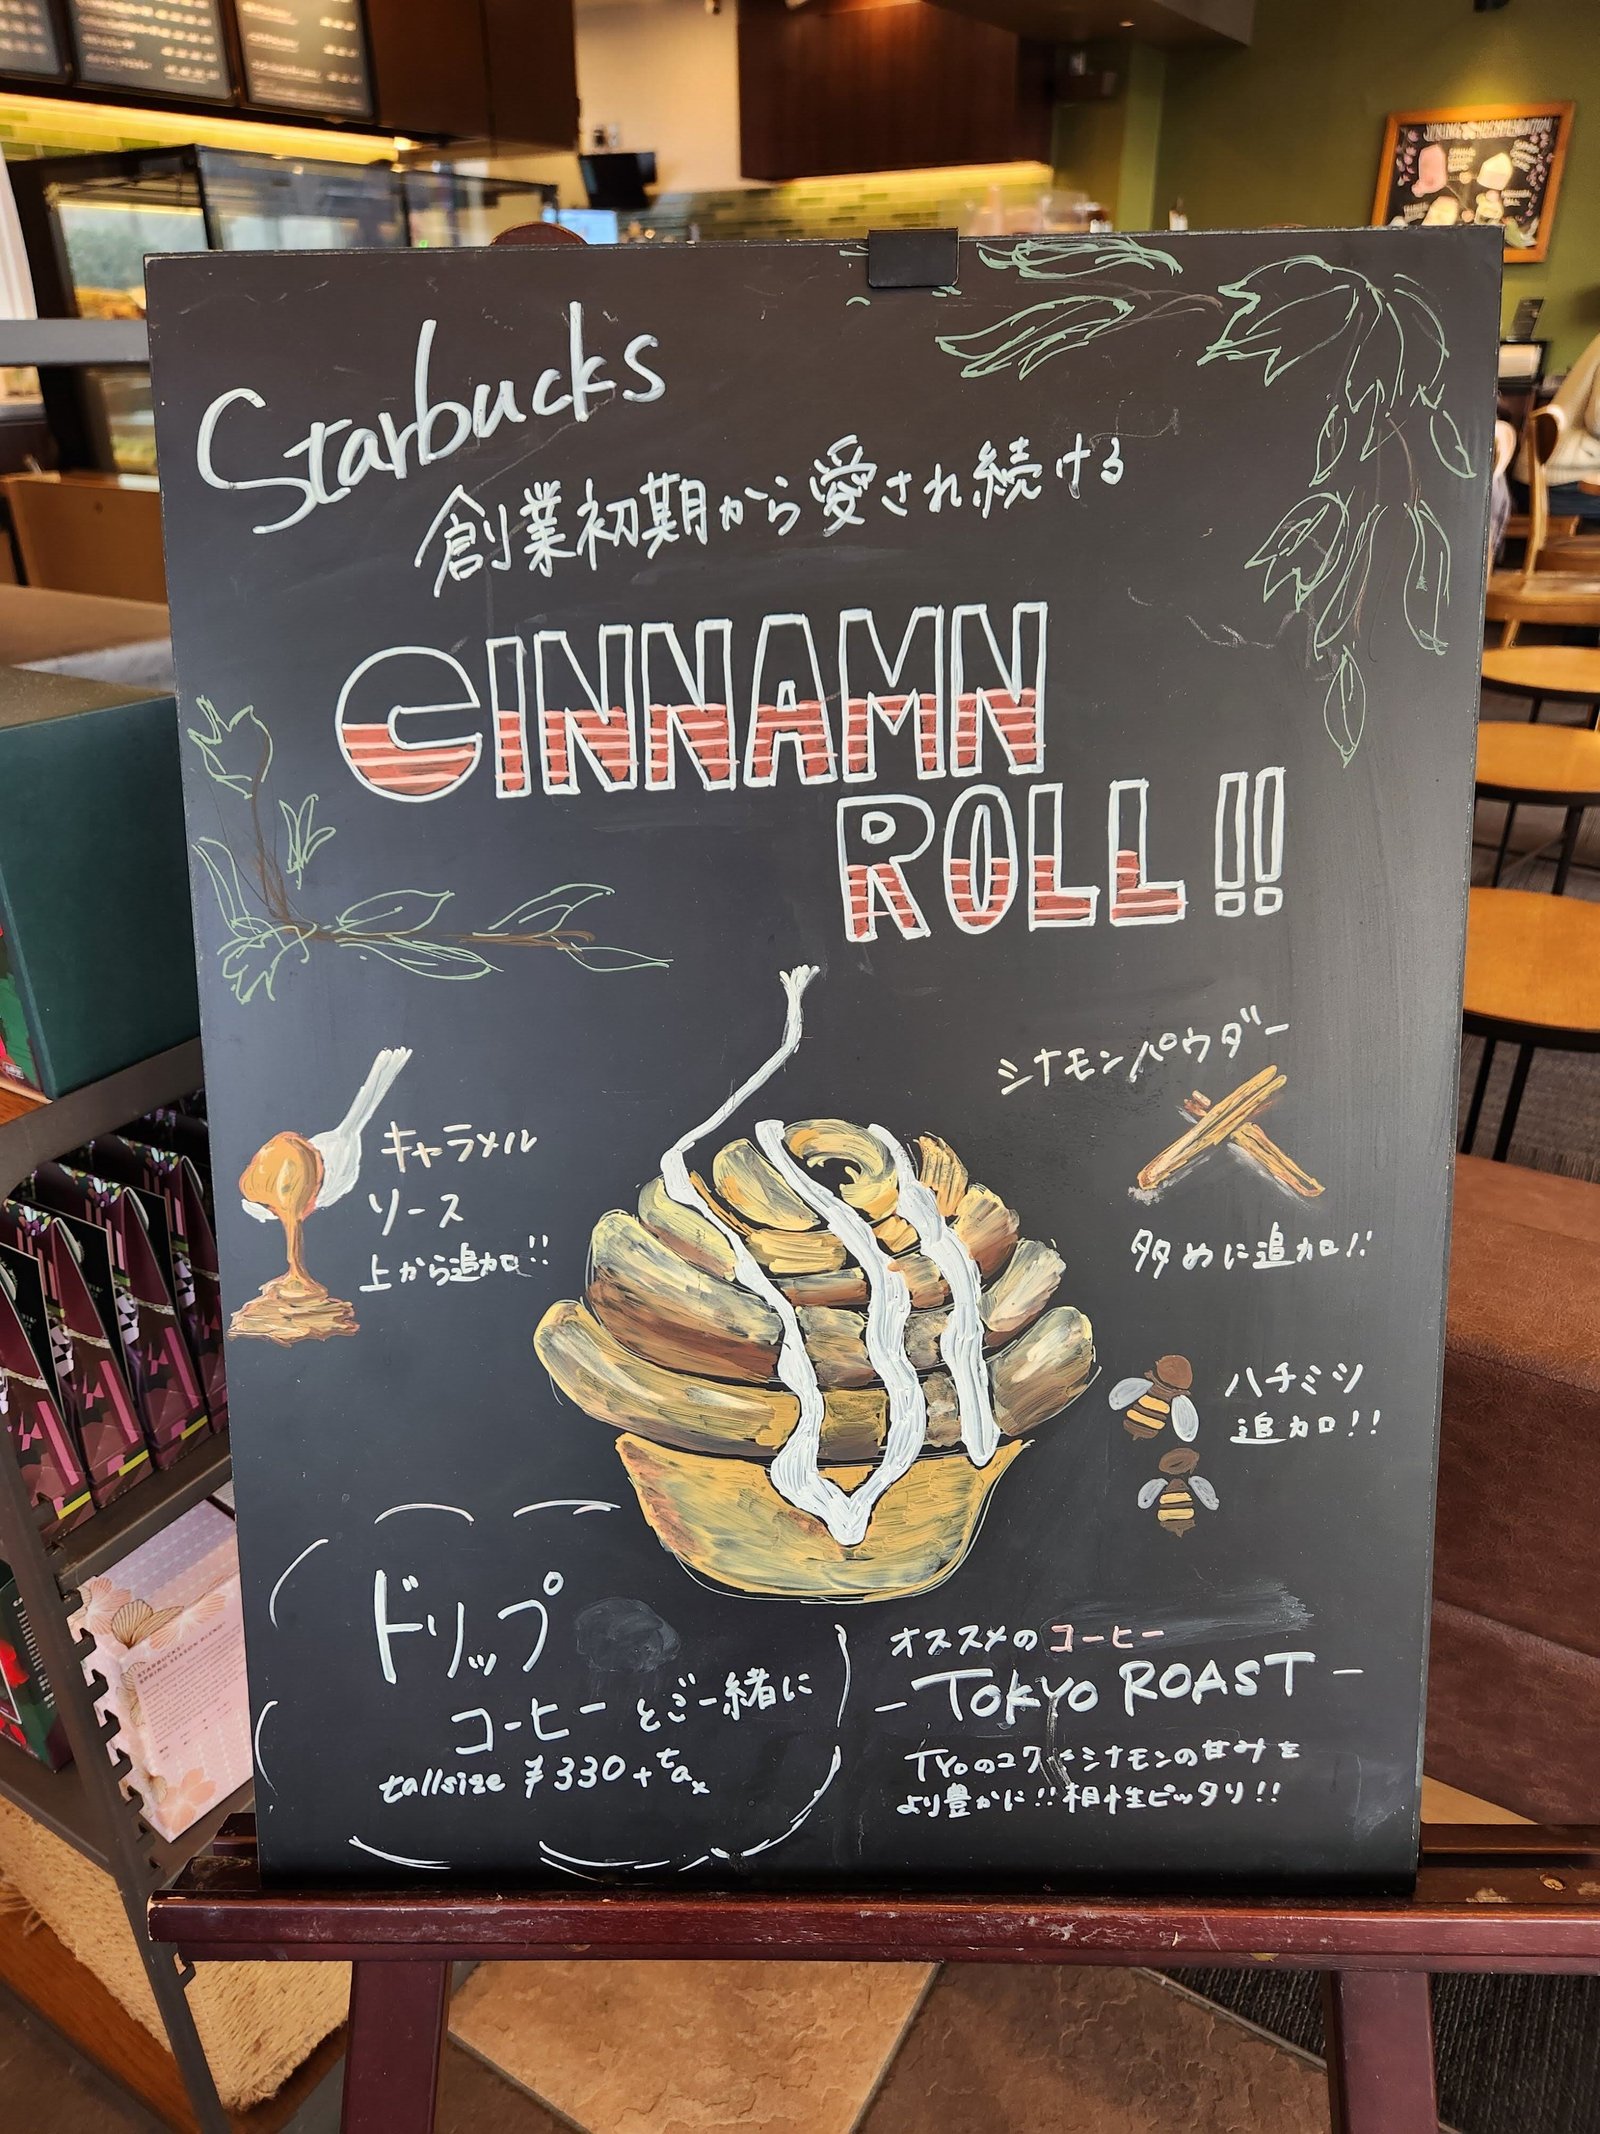 Starbucks
創業初期から愛され続ける
CINNAMN
ROLL!!
シナモンパウダー
多めに追加!!
キャラメル
ソース
上から追加!!
ハチミツ
追加!!
ドリップ
コーヒーとご一緒に
tallsize ¥330+tax
オススメのコーヒー
-TOKYO ROAST-
TYOのコク シナモンの甘みを
より豊かに!!相性ピッタリ!!
STARBUCKS
SPRING SEASON BLEND